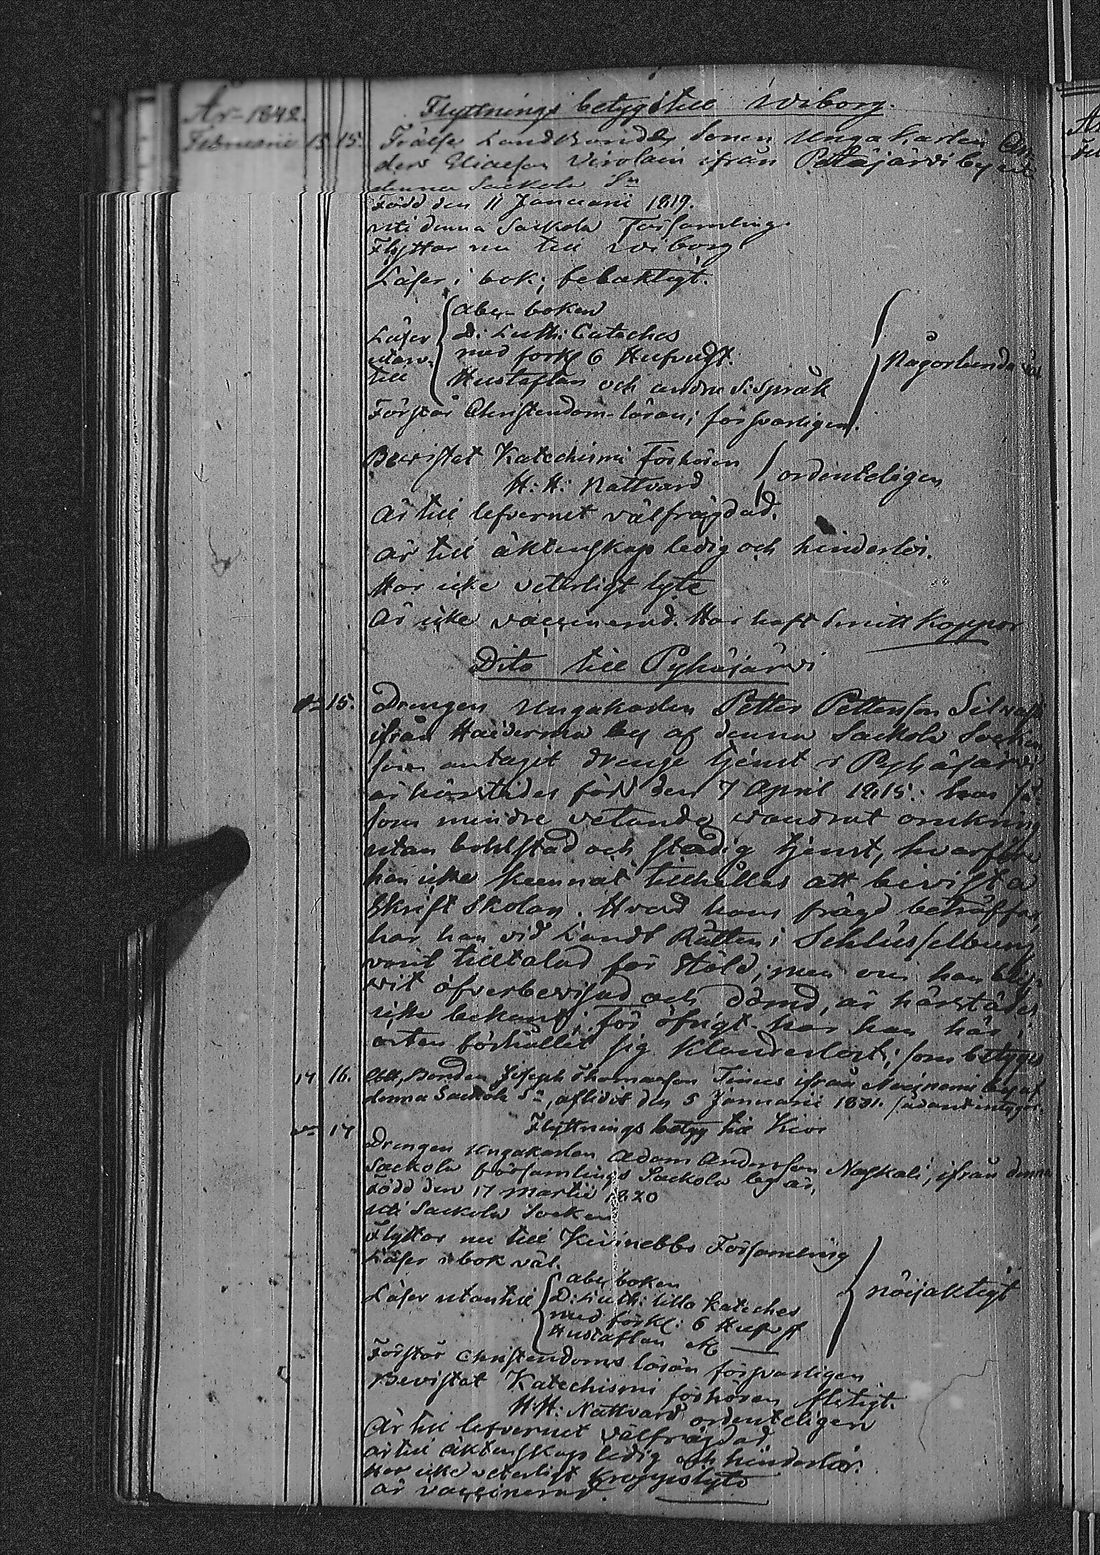 År 1842.
Februarii 15. 15.
Flyttnings betyg till Wiborg.
Frälse Landtbonde Sonen Ungakarlen An
ders Eliaeson Virolain ifrån Petäjärvi by
denna Sackola Sn
Född den 11 Januarii 1819.
uti denna Sackola Församling.
Flyttar nu till Wiborg
Läser i bok; behäktigt.
Läser utanv. till
abc-boken
D: Luth: Cateches
med förkl 6 Hufvudst.
Hustaflan och andra S: Språk
Någorlunda väl
Förstår Christendoms läran; försvarligen.
Bevistat Katechismi Förhören
H: H: Nattvard
ordenteligen
Är till lefvernet välfrägdad.
är till äktenskap ledig och hinderlös.
Har icke veterligt lyte
Är icke vaccinerad. Har haft Smitt Koppor
Dito till Pyhäjärvi
15.
Drengen Ungakarlen Petter Pettersson
ifrån Haiderma by af denna Sackola Socken
som antagit drenge tjenst i Pyhäjärvi
är härstädes född den 7 April 1815: har så
som mindre vetande vandrat omkring
utan bohlstad och stadig tjenst, hvarföre
han icke kunnat tillhållas att bevista
Skrift Skolan. Hvad hans frägd beträffar,
har han vid Landt Rätten i Schlüsselburg
varit tilltalad för stöld; men om han blif-
vit öfverbevisad och dömd, är härstädes
icke bekant; för öfrigt har han här i
orten förhållit sig klanderlöst; som betygas
17 16. Att, Bonden Joseph Thomasson Tius ifrån by af
denna Sackola Sn, aflidit den 5 Januarii 1831. sådant intygas.
17
Flyttnings betyg till Kivi
Drengen Ungakarlen Adam Andersson Naskali, ifrån denna
Sackola församlings Sackola by är,
Född den 17 Martii 1820
uti Sackola Socken
Flyttar nu till Kivinebbs Församling
Läser i bok väl.
Läser utantill
abc boken
D: Luth: lilla Kateches
med förkl: 6 Hufvst
Hustaflan &c
nöijaktigt
Förstår Christendoms läran försvarligen
Bevistat Katechismi förhören flitigt.
H: H: Nattvard ordenteligen
Är till lefvernet välfrägdad
är till äktenskap ledig och hinderlös.
Har icke veterligt kroppslyte
är vaccinerad.